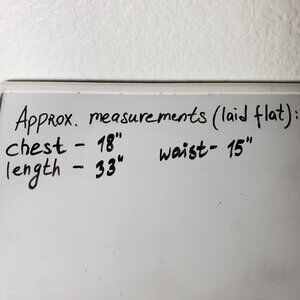 Approx. measurements (laid flat):
chest - 18" waist- 15"
length - 33"